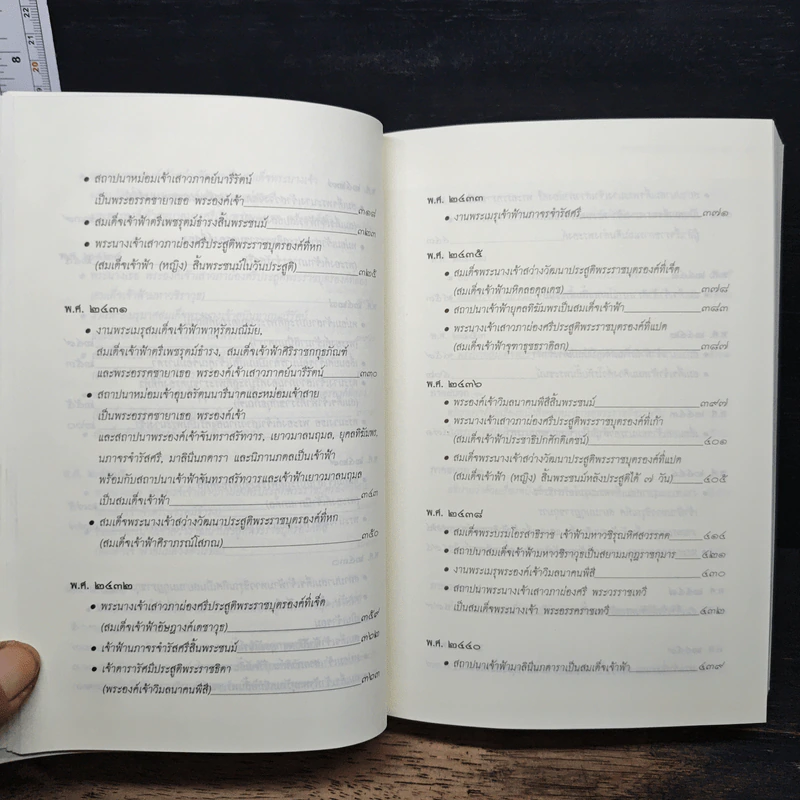 • สถาปนาหม่อมเจ้าเสาวภาคย์นารีรัตน์
เป็นพระอรรคชายาเธอ พระองค์เจ้า ๓๑๘
• สมเด็จเจ้าฟ้าตรีเพชรุตม์ธำรงสิ้นพระชนม์ ๓๒๓
• พระนางเจ้าเสาวภาผ่องศรีประสูติพระราชบุตรองค์ที่หก
(สมเด็จเจ้าฟ้า (หญิง) สิ้นพระชนม์ในวันประสูติ) ๓๒๕
พ.ศ. ๒๔๓๑
• งานพระเมรุสมเด็จเจ้าฟ้าพาหุรัดมณีมัย,
สมเด็จเจ้าฟ้าตรีเพชรุตม์ธำรง, สมเด็จเจ้าฟ้าศิริราชกกุธภัณฑ์
และพระอรรคชายาเธอ พระองค์เจ้าเสาวภาคย์นารีรัตน์ ๓๓๐
• สถาปนาหม่อมเจ้าอุบลรัตนนารีนาคและหม่อมเจ้าสาย
เป็นพระอรรคชายาเธอ พระองค์เจ้า
และสถาปนาพระองค์เจ้าจันทราสรัทวาร, เยาวมาลนฤมล, ยุคลทิฆัมพร,
นภาจรจำรัสศรี, มาลินีนภดารา และนิภานภดลเป็นเจ้าฟ้า
พร้อมกับสถาปนาเจ้าฟ้าจันทราสรัทวารและเจ้าฟ้าเยาวมาลนฤมล
เป็นสมเด็จเจ้าฟ้า ๓๔๓
• สมเด็จพระนางเจ้าสว่างวัฒนาประสูติพระราชบุตรองค์ที่หก
(สมเด็จเจ้าฟ้าศิราภรณ์โสภณ) ๓๕๐
พ.ศ. ๒๔๓๒
• พระนางเจ้าเสาวภาผ่องศรีประสูติพระราชบุตรองค์ที่เจ็ด
(สมเด็จเจ้าฟ้าอัษฎางค์เดชาวุธ) ๓๕๙
• เจ้าฟ้านภาจรจำรัสศรีสิ้นพระชนม์ ๓๖๒
• เจ้าดารารัศมีประสูติพระราชธิดา
(พระองค์เจ้าวิมลนาคนพีสี) ๓๖๓
พ.ศ. ๒๔๓๓
• งานพระเมรุเจ้าฟ้านภาจรจำรัสศรี ๓๗๑
พ.ศ. ๒๔๓๕
• สมเด็จพระนางเจ้าสว่างวัฒนาประสูติพระราชบุตรองค์ที่เจ็ด
(สมเด็จเจ้าฟ้ามหิดลอดุลเดช) ๓๗๘
• สถาปนาเจ้าฟ้ายุคลทิฆัมพรเป็นสมเด็จเจ้าฟ้า ๓๘๓
• พระนางเจ้าเสาวภาผ่องศรีประสูติพระราชบุตรองค์ที่แปด
(สมเด็จเจ้าฟ้าจุฑาธุชธราดิลก) ๓๘๗
พ.ศ. ๒๔๓๖
• พระองค์เจ้าวิมลนาคนพีสีสิ้นพระชนม์ ๓๙๗
• พระนางเจ้าเสาวภาผ่องศรีประสูติพระราชบุตรองค์ที่เก้า
(สมเด็จเจ้าฟ้าประชาธิปกศักดิเดชน์) ๔๐๑
• สมเด็จพระนางเจ้าสว่างวัฒนาประสูติพระราชบุตรองค์ที่แปด
(สมเด็จเจ้าฟ้า (หญิง) สิ้นพระชนม์หลังประสูติได้ ๗ วัน) ๔๐๕
พ.ศ. ๒๔๓๘
• สมเด็จพระบรมโอรสาธิราช เจ้าฟ้ามหาวชิรุณหิศสวรรคต ๔๑๔
• สถาปนาสมเด็จเจ้าฟ้ามหาวชิราวุธเป็นสยามมกุฎราชกุมาร ๔๒๑
• งานพระเมรุพระองค์เจ้าวิมลนาคนพีสี ๔๓๐
• สถาปนาพระนางเจ้าเสาวภาผ่องศรี พระวรราชเทวี
เป็นสมเด็จพระนางเจ้า พระอรรคราชเทวี ๔๓๒
พ.ศ. ๒๔๔๐
• สถาปนาเจ้าฟ้ามาลินีนภดาราเป็นสมเด็จเจ้าฟ้า ๔๓๙